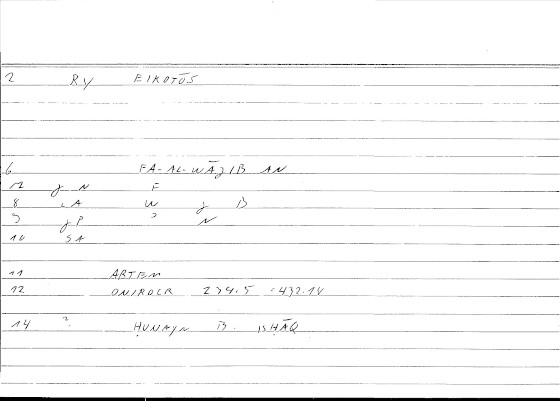 2 RY EIKOTŌS
6 FA-AL-WĀǧIB AN
12 ǧ N F
8 LA W ǧ B
9 ǧP ? N
10 SA
11 ARTEM
12 ONIROCR 234.5 - 432.14
14 ? ḤUNAYN B. ISḤĀQ